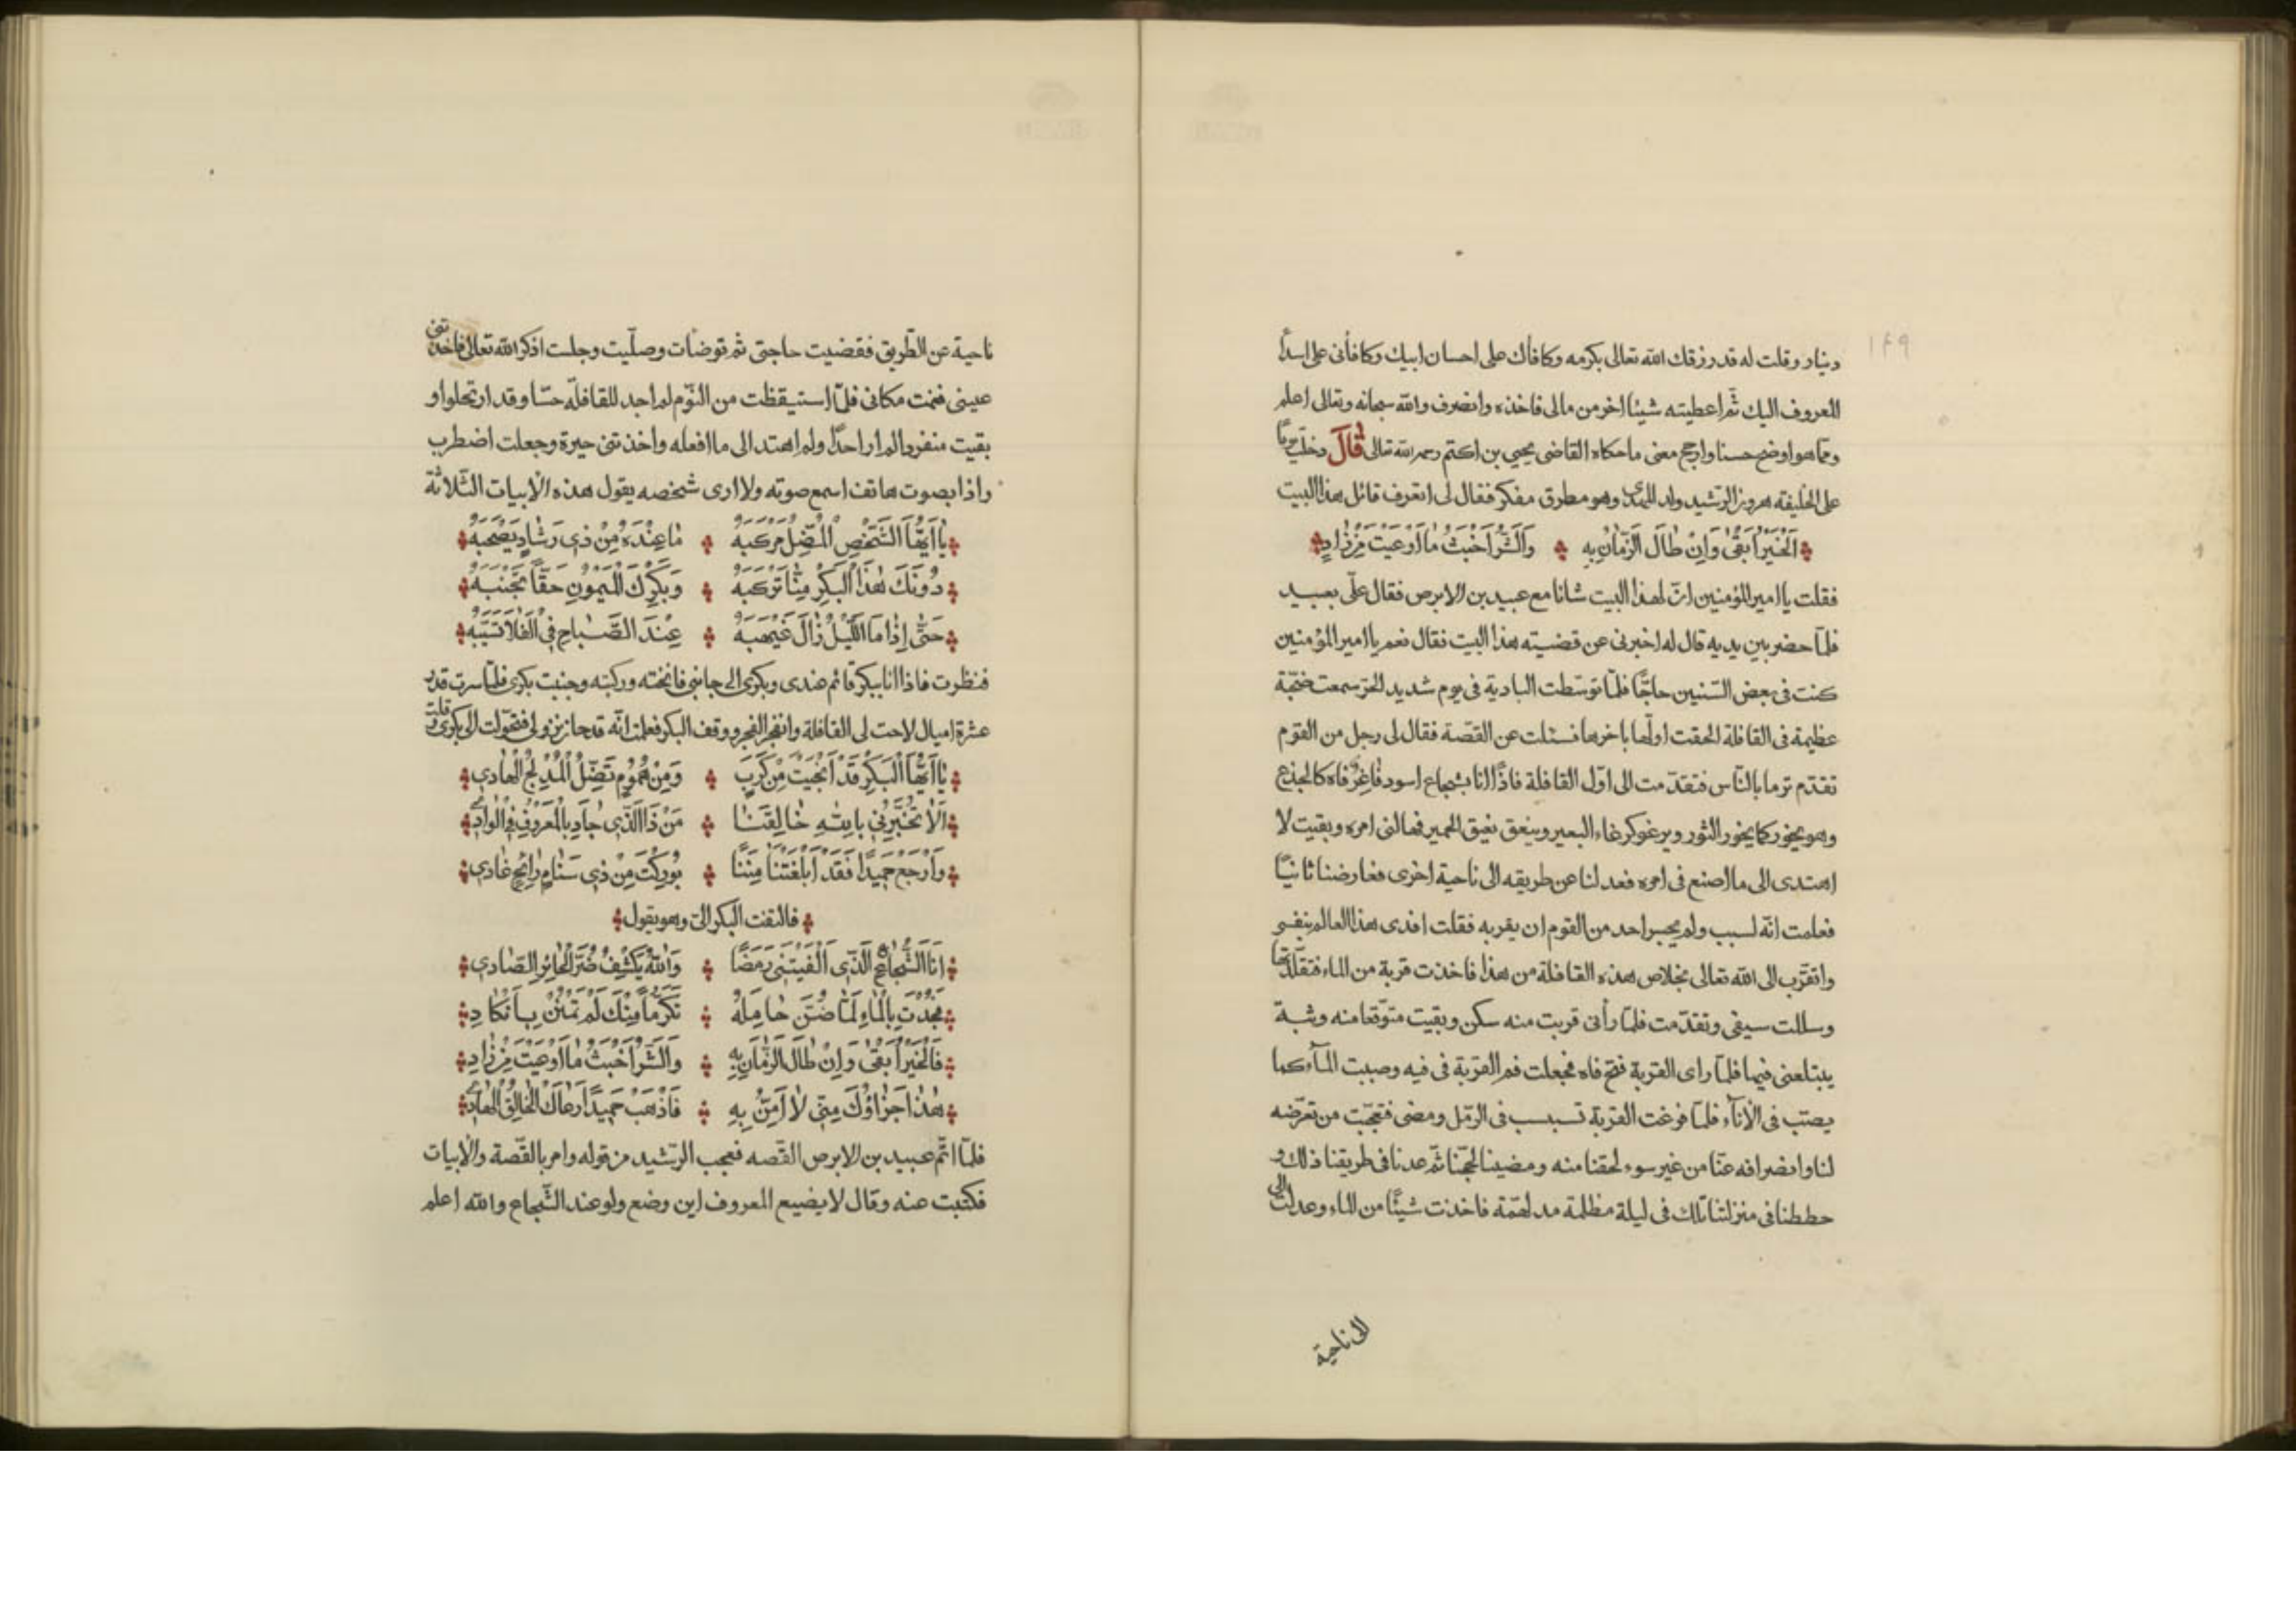 ١٤٩
دينار وقلت له قد رزقك الله تعالى بكرمه وكافأك على احسان ابيك وكافأنى على اسدأ
المعروف اليك ثمّ اعطيته شيئا اخر من مالى فاخذه وانصرف والله سبحانه وتعالى اعلم
وممّا هو اوضح حسنا وارجح معنى ما حكاه القاضى يحيى بن اكتم رحمه الله تعالى قَالَ دخلت يومًا
على الخليفة هرون الرّشيد ولد المهدى وهو مطرق مفكر فقال لى اتعرف قائل هذا البيت
اَلْخَيْرُ اَبْقٰى وَاِنْ طَالَ الزَّمَانُ بِهِ وَالشَّرُّ اَخْبَثُ مَا اَوْعَيْتَ مِنْ زٰادِ
فقلت يا امير المؤمنين انّ لهذا البيت شانا مع عبيد بن الابرص فقال علّى بعبيد
فلمّا حضر بين يديه قال له اخبرنى عن قضيته هذا البيت فقال نعم يا امير المؤمنين
كنت فى بعض السّنين حاجًّا فلمّا توسّطت البادية فى يوم شديد الحرّ سمعت ضجّة
عظيمة فى القافلة الحقت اولّها باخرها فسئلت عن القصّة فقال لى رجل من القوم
تقدّم تر ما بالنّاس فتقدّمت الى اوّل القافلة فاذًا انا بشجاع اسود فاغرٌ فاه كالجذع
وهو يخور كما يخور الثور ويرغو كرغاء البعير وينعق نعيق الحمير فهالنى امره وبقيت لا
اهتدى الى ما اصنع فى امره فعدلنا عن طريقه الى ناحية اخرى فعارضنا ثانيًا
فعلمت انّه لسبب ولم يجسر احد من القوم ان يقربه فقلت افدى هذا العالم بنفسى
واتقرّب الى الله تعالى بخلاص هذه القافلة من هذا فاخذت قربة من الماء فتقلّدتها
وسللت سيفى وتقدّمت فلمّا رأنى قربت منه سكن وبقيت متوقّعا منه وثبة
يبتلعنى فيها فلمّا راى القربة فتح فاه فجعلت فم القربة فى فيه وصببت المآء كما
يصبّ فى الاناء فلمّا فرغت القربة تسبسب فى الرّمل ومضى فتعجّبت من تعرّضه
لنا وانصرافه عنّا من غير سوء لحقنا منه ومضينا لحجّنا ثمّ عدنا فى طريقنا ذلك و
حططنا فى منزلتنا تلك فى ليلة مظلمة مدلهمّة فاخذت شيئًا من الماء وعدلت الى
الى ناحية
ناحية عن الطّريق فقضيت حاجتى ثم توضأت وصلّيت وجلست اذكر الله تعالى فاخذتنى
عينى فنمت مكانى فلمّا استيقظت من النّوم لم اجد للقافلة حسّا وقد ارتحلوا و
بقيت منفردا لم ار احدًا ولم اهتد الى ما افعله واخذتنى حيرة وجعلت اضطرب
واذا بصوت هاتف اسمع صوته ولا ارى شخصه يقول هذه الابيات الثّلاثة
يٰا اَيُّهَا الشَّخْصُ الْمُضِلُّ مَرْكَبُهُ مٰا عِنْدَهُ مِنْ ذِى رَشَادٍ يَصْحَبُهُ
دُونَكَ هٰذَا الْبَكْرُ مِنّٰا تَرْكَبُهُ وَبَكْرُكَ الْمَيْمُونُ حَقًّا تَجْنُبُهُ
حَتّٰى اِذٰا مَا اللَّيْلُ زٰالَ غَيْهَبُهُ عِنْدَ الصَّبٰاحِ فِى الْفَلَا تُسَيِّبُهُ
فنظرت فاذا انا ببكر قائم عندى وبكرى الى جانبى فانخته وركبته وجنبت بكرى فلمّا سرت قدر
عشرة اميال لاحت لى القافلة وانفجر الفجر ووقف البكر فعلمت انّه قد حان نزولى فتحوّلت الى بكرى وقلت
يٰا اَيُّهَا الْبَكْرُ قَدْ اَنْجَيْتَ مِنْ كَرْبٍ وَمِنْ هُمُومٍ تُضِلُّ الْمُدْلِجَ الْهٰادِى
اَلَا تُخَبِّرُنِى بِاللهِ خٰالِقِنَا مَنْ ذَا الَّذِى جٰادَ بِالْمَعْرُوفِ فِى الْوٰادِى
وَارْجِعْ حَمِيدًا فَقَدْ اَبْلَغْتَنَا مِنَنًا بُورِكْتَ مِنْ ذِى سَنَامٍ رٰائِحٍ غٰادِى
فالتفت البكر الىّ وهو يقول
اَنَا الشُّجَاعُ الَّذِى اَلْفَيْتَنِى رَمَضًا وَاللهُ يَكْشِفُ ضُرَّ الْحٰائِرِ الصّٰادِى
فَجُدْتَ بِالْمٰاءِ لَمّٰا ضَنَّ حٰامِلُهُ تَكَرُّمًا مِنْكَ لَمْ تَمْنُنْ بِاَنْكٰادِ
فَالْخَيْرُ اَبْقٰى وَاِنْ طَالَ الزَّمَانُ بِهِ وَالشَّرُّ اَخْبَثُ مٰا اَوْعَيْتَ مِنْ زٰادِ
هٰذٰا جَزٰاؤُكَ مِنّى لَا اَمُنُّ بِهِ فَاذْهَبْ حَمِيدًا رَعَاكَ الْخَالِقُ الْهٰادِى
فلمّا اتّم عبيد بن الابرص القصّه فعجب الرّشيد من قوله وامر بالقصّة والابيات
فكتبت عنه وقال لا يضيع المعروف اين وضع ولو عند الشّجاع والله اعلم